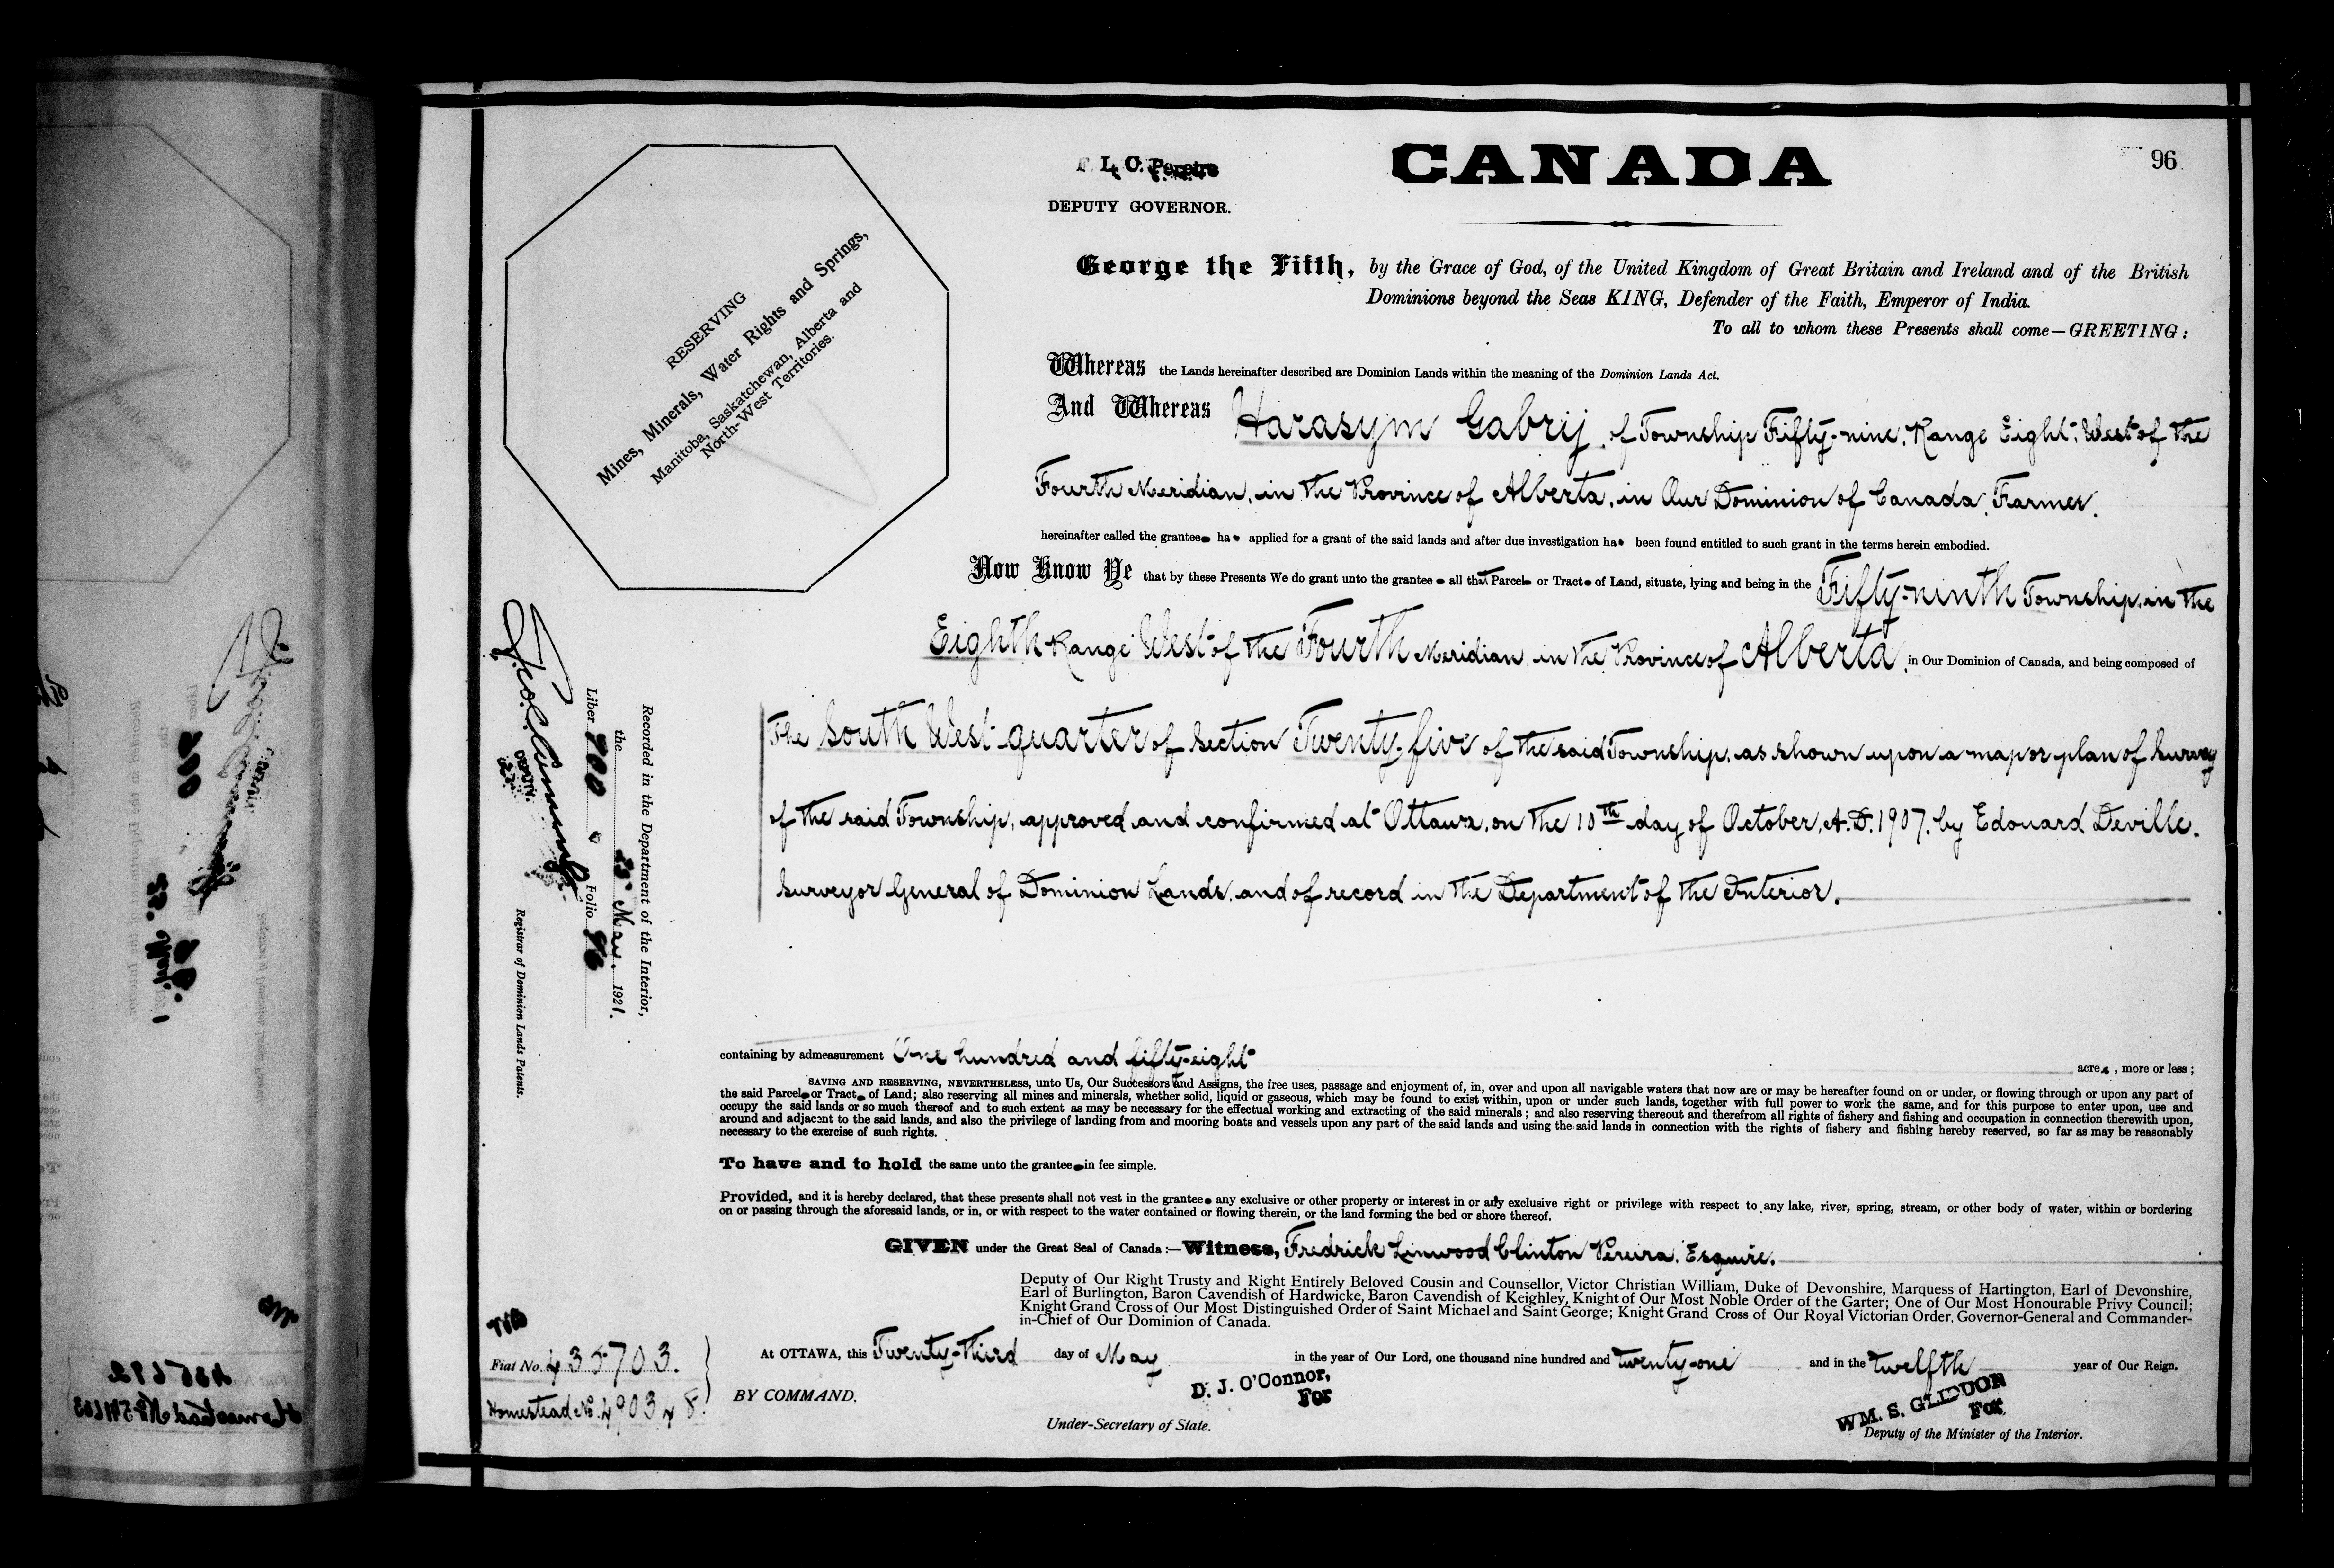 F. L. C. Pereira
DEPUTY GOVERNOR.
CANADA
96
George the Fifth, by the Grace of God, of the United Kingdom of Great Britain and Ireland and of the British
Dominions beyond the Seas KING, Defender of the Faith, Emperor of India.
To all to whom these Presents shall come—GREETING:
RESERVING
Mines, Minerals, Water Rights and Springs,
Manitoba, Saskatchewan, Alberta and
North-West Territories.
Whereas the Lands hereinafter described are Dominion Lands within the meaning of the Dominion Lands Act.
And Whereas Harasym Gabrij, of Township Fifty-nine, Range Eight, West of the
Fourth Meridian, in the Province of Alberta, in Our Dominion of Canada, Farmer,
hereinafter called the grantee ha applied for a grant of the said lands and after due investigation ha been found entitled to such grant in the terms herein embodied.
Now Know Ye that by these Presents We do grant unto the grantee all that Parcel or Tract of Land, situate, lying and being in the Fifty-ninth Township, in the
Eighth Range West of the Fourth Meridian, in the Province of Alberta, in Our Dominion of Canada, and being composed of
The South West quarter of Section Twenty-five of the said Township, as shown upon a map or plan of Survey
of the said Township, approved and confirmed at Ottawa, on the 10th day of October, A.D. 1907, by Edouard Deville,
Surveyor General of Dominion Lands, and of record in the Department of the Interior.
Recorded in the Department of the Interior,
the 25 May 1921.
Liber 700 Folio 96
DEPUTY
Registrar of Dominion Lands Patents.
containing by admeasurement One hundred and fifty-eight acres, more or less;
SAVING AND RESERVING, NEVERTHELESS, unto Us, Our Successors and Assigns, the free uses, passage and enjoyment of, in, over and upon all navigable waters that now are or may be hereafter found on or under, or flowing through or upon any part of
the said Parcel or Tract of Land; also reserving all mines and minerals, whether solid, liquid or gaseous, which may be found to exist within, upon or under such lands, together with full power to work the same, and for this purpose to enter upon, use and
occupy the said lands or so much thereof and to such extent as may be necessary for the effectual working and extracting of the said minerals; and also reserving thereout and therefrom all rights of fishery and fishing and occupation in connection therewith upon,
around and adjacent to the said lands, and also the privilege of landing from and mooring boats and vessels upon any part of the said lands and using the said lands in connection with the rights of fishery and fishing hereby reserved, so far as may be reasonably
necessary to the exercise of such rights.
To have and to hold the same unto the grantee in fee simple.
Provided, and it is hereby declared, that these presents shall not vest in the grantee any exclusive or other property or interest in or any exclusive right or privilege with respect to any lake, river, spring, stream, or other body of water, within or bordering
on or passing through the aforesaid lands, or in, or with respect to the water contained or flowing therein, or the land forming the bed or shore thereof.
GIVEN under the Great Seal of Canada:—Witness, Fredrick Linwood Clinton Pereira, Esquire,
Deputy of Our Right Trusty and Right Entirely Beloved Cousin and Counsellor, Victor Christian William, Duke of Devonshire, Marquess of Hartington, Earl of Devonshire,
Earl of Burlington, Baron Cavendish of Hardwicke, Baron Cavendish of Keighley, Knight of Our Most Noble Order of the Garter; One of Our Most Honourable Privy Council;
Knight Grand Cross of Our Most Distinguished Order of Saint Michael and Saint George; Knight Grand Cross of Our Royal Victorian Order, Governor-General and Commander-
in-Chief of Our Dominion of Canada.
At OTTAWA, this Twenty-third day of May in the year of Our Lord, one thousand nine hundred and twenty-one and in the twelfth year of Our Reign.
Fiat No. 435703.
Homestead No. 490348.
BY COMMAND,
D. J. O'Connor,
For
Under-Secretary of State.
WM. S. GLIDDON
For
Deputy of the Minister of the Interior.